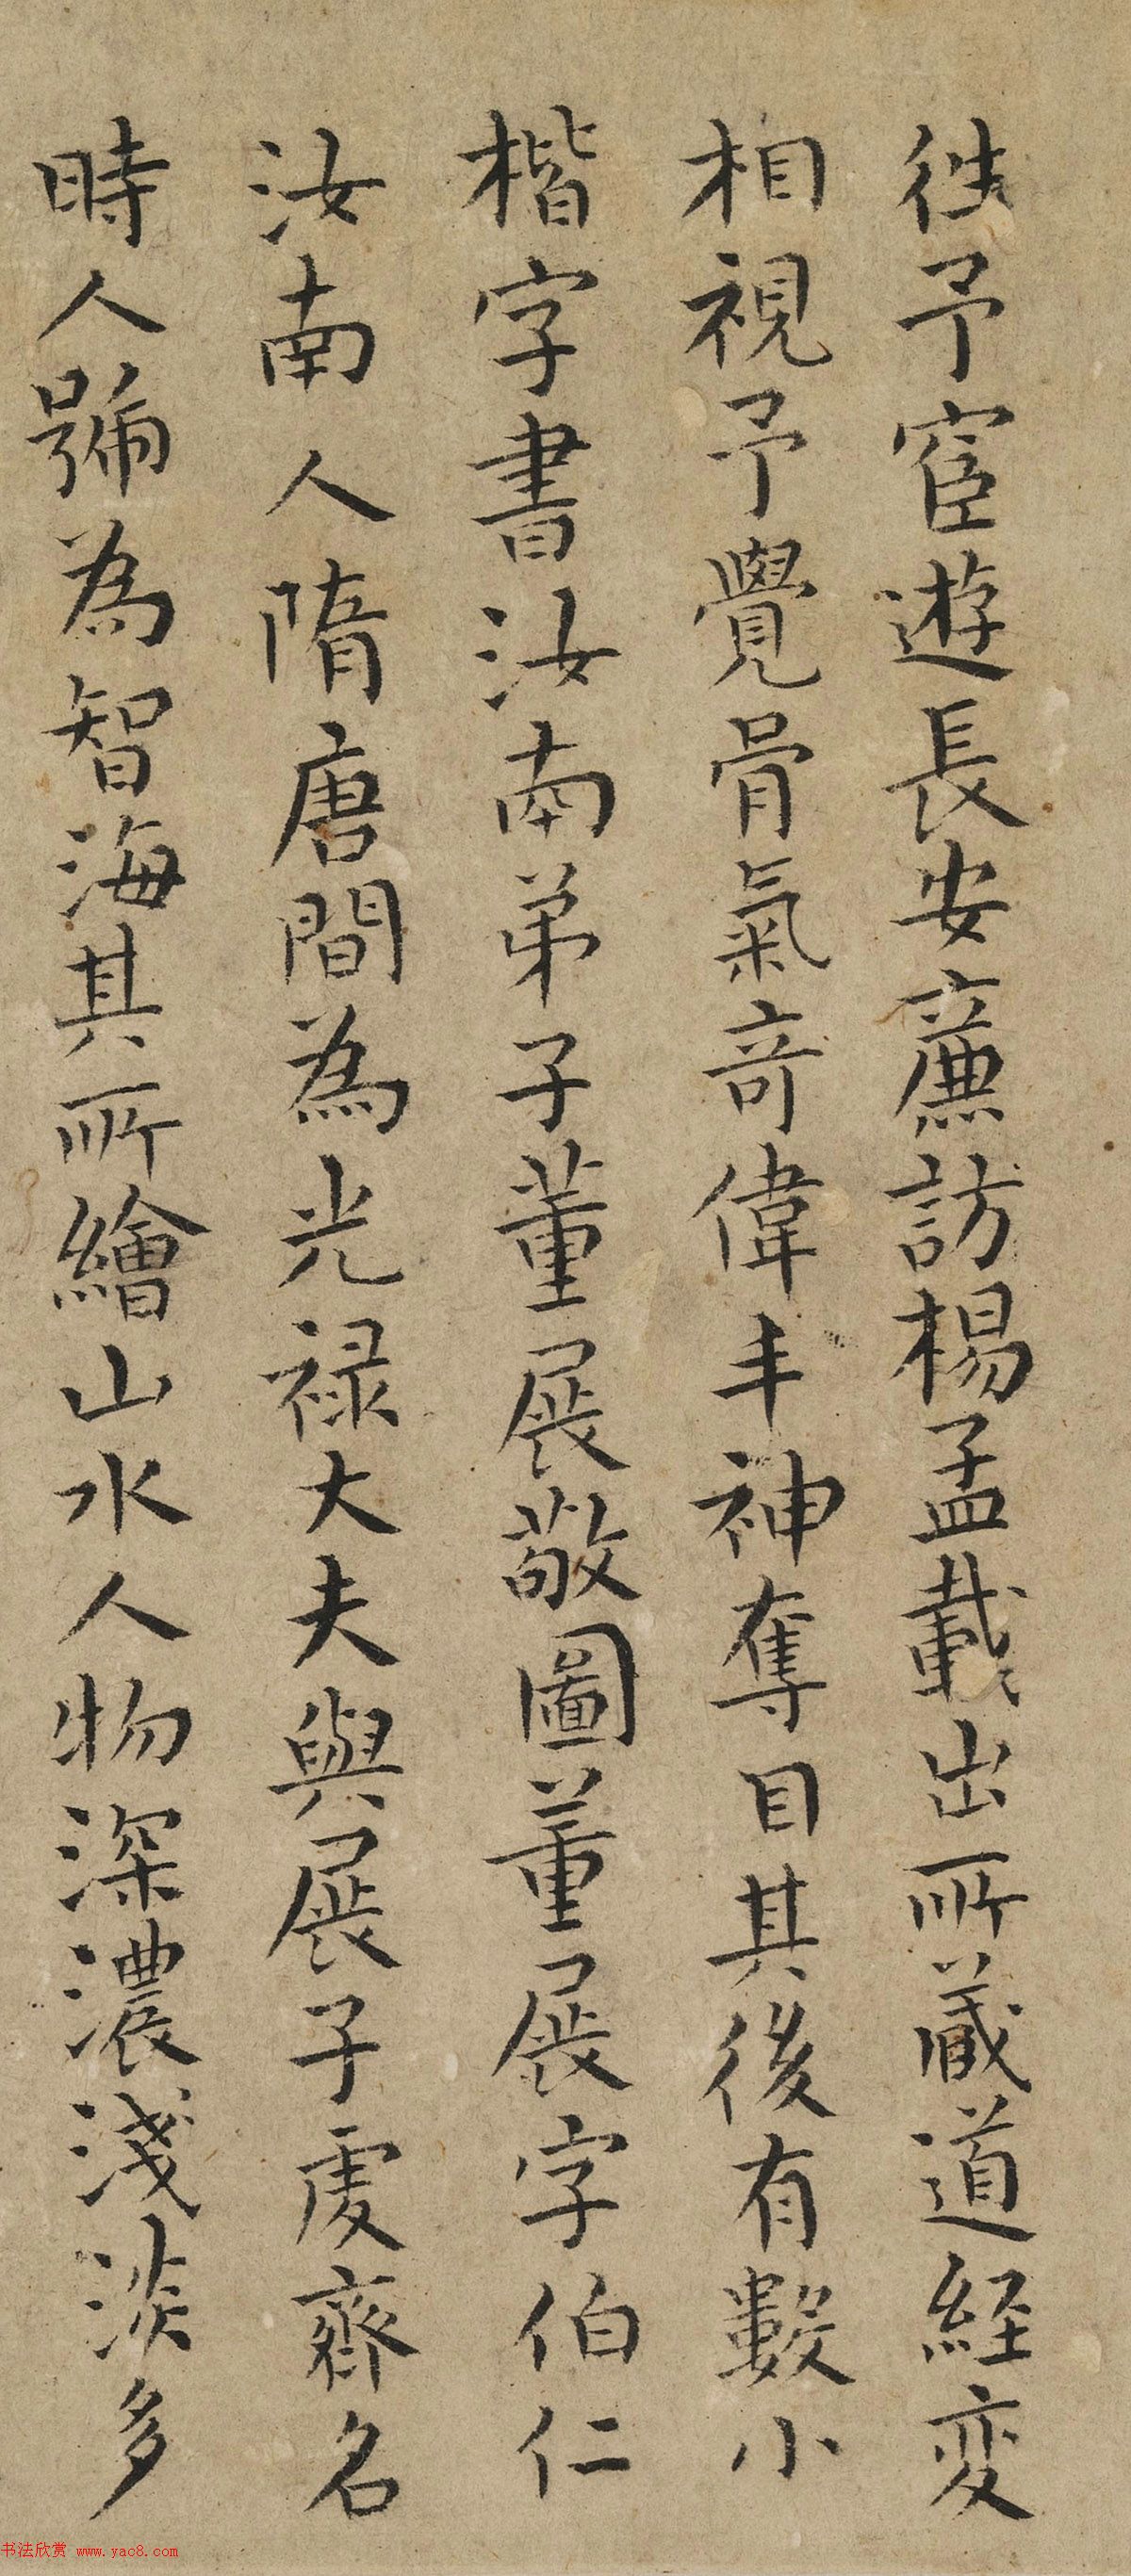 往予宦遊長安廉訪楊孟載出所蔵道経変
相視予覺骨氣竒偉丰神奪目其後有數小
楷字書汝南弟子董展敬圖董展字伯仁
汝南人隋唐間為光禄大夫與展子虔齊名
時人號為智海其所繪山水人物深濃淺淡多
书法欣赏 www.yac8.com